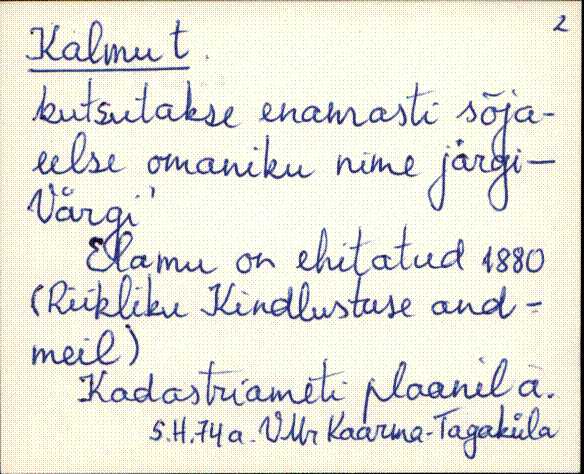 2
Kalmu t.
kutsutakse enamasti sõja-
eelse omaniku nime järgi—
Värgi'
Elamu on ehitatud 1880
(Riikliku Kindlustuse and-
meil)
Kadastriameti plaanil a.
S.H.74a. VMr Kaarma-Tagaküla